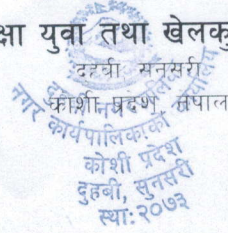 क्षा युवा तथा खेलकु
दुहबी सुनसरी
कोशी प्रदेश नेपाल
नगर कार्यपालिकाको
कोशी प्रदेश
दुहबी, सुनसरी
स्था: २०७३